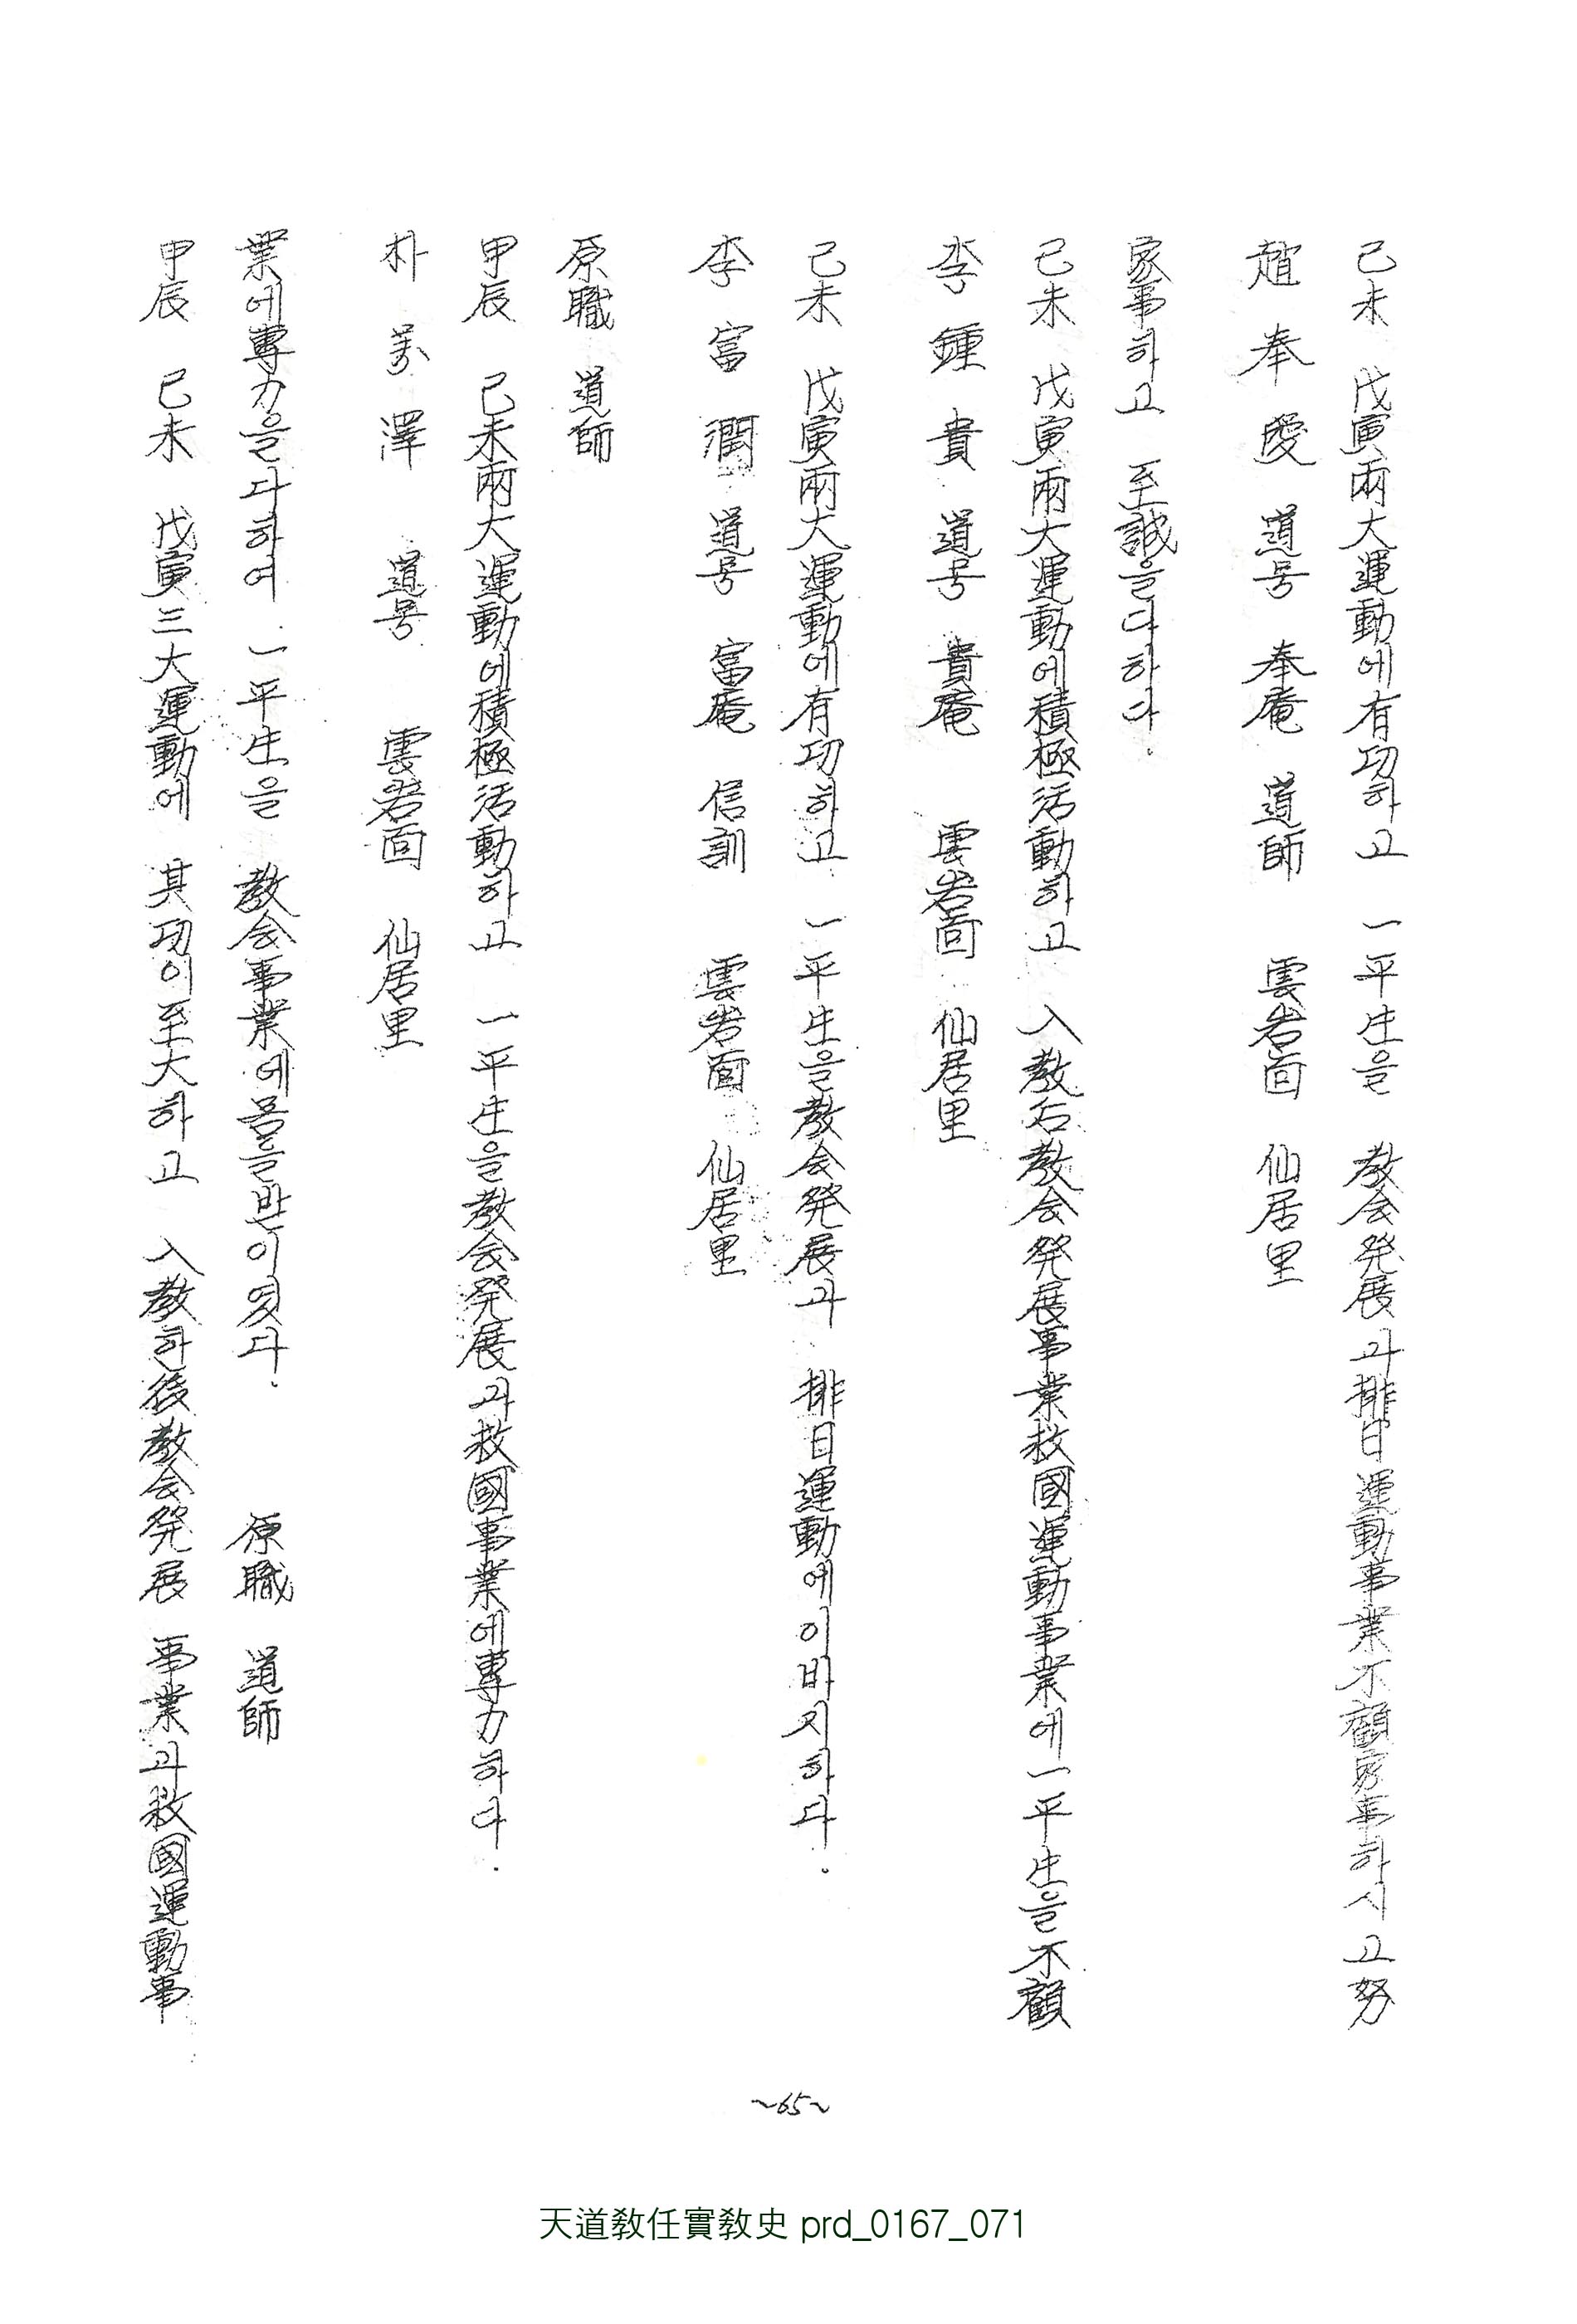 己未 戊寅兩大運動에有功하고 一平生을 教会発展과排日運動事業不顧家事하시고努
趙奉愛 道号 奉庵 道師 雲岩面 仙居里
家事하고 至誠을다하다.
己未 戊寅兩大運動에積極活動하고 入教后教会発展事業救國運動事業에一平生을不顧
李鍾貴 道号 貴庵 雲岩面 仙居里
己未 戊寅兩大運動에有功하고 一平生을教会発展과 排日運動에이바지하다.
李富潤 道号 富庵 信訓 雲岩面 仙居里
原職 道師
甲辰 己未兩大運動에積極活動하고 一平生을教会発展과救國事業에専力하다.
朴万澤 道号 雲岩面 仙居里
業에專力을다하여 一平生을 教会事業에몸을받이엿다. 原職 道師
甲辰 己未 戊寅三大運動에 其功이至大하고 入教한後教会発展 事業과救國運動事
~65~
天道敎任實敎史 prd_0167_071